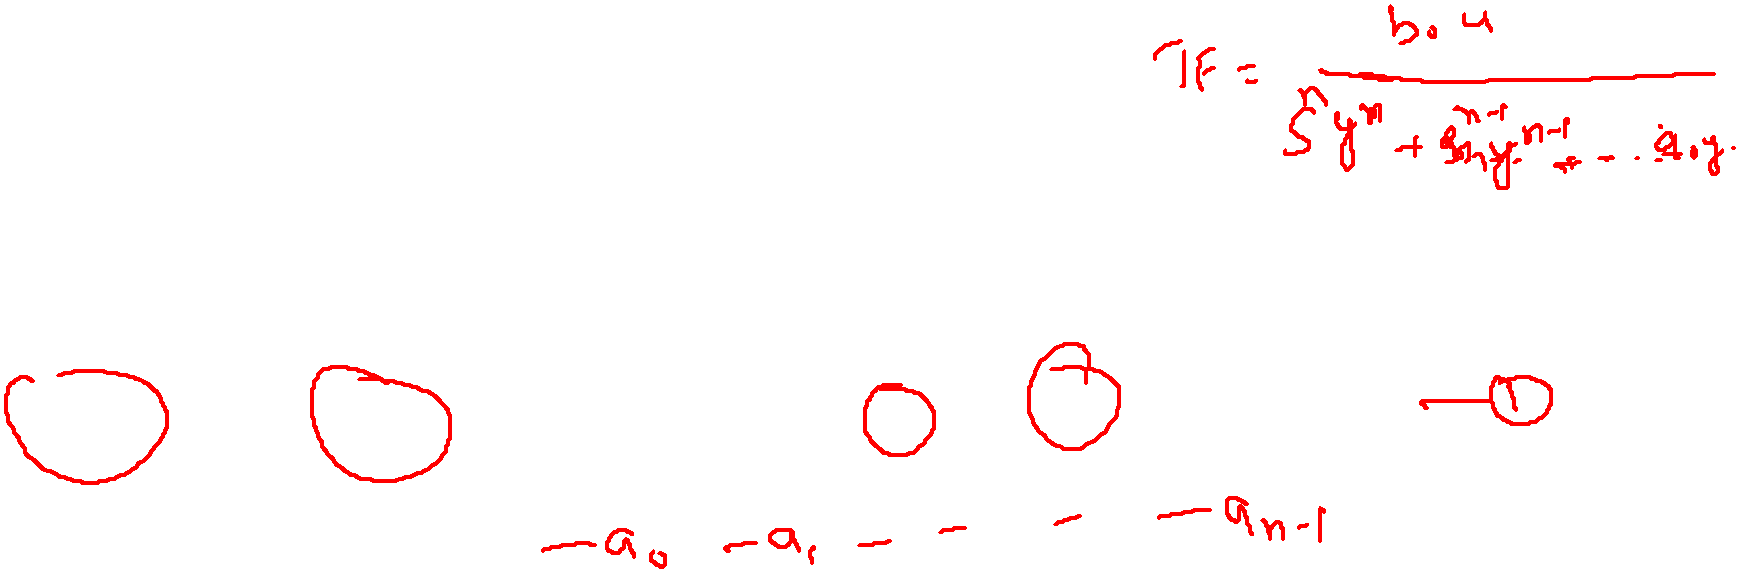 TF = b₀ u / Sⁿ yⁿ + aₙ₋₁ yⁿ⁻¹ + - - . a₀ y.
— a₀ — a₁ — — — — aₙ₋₁